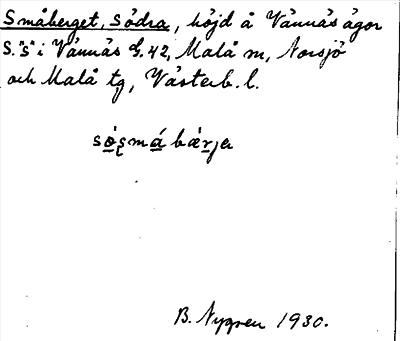 Småberget, Södra, höjd å Vännäs ägor
S. "s" i Vännäs G. 42, Malå sn, Norsjö
och Malå tg, Västerb. l.
B. Nygren 1930.